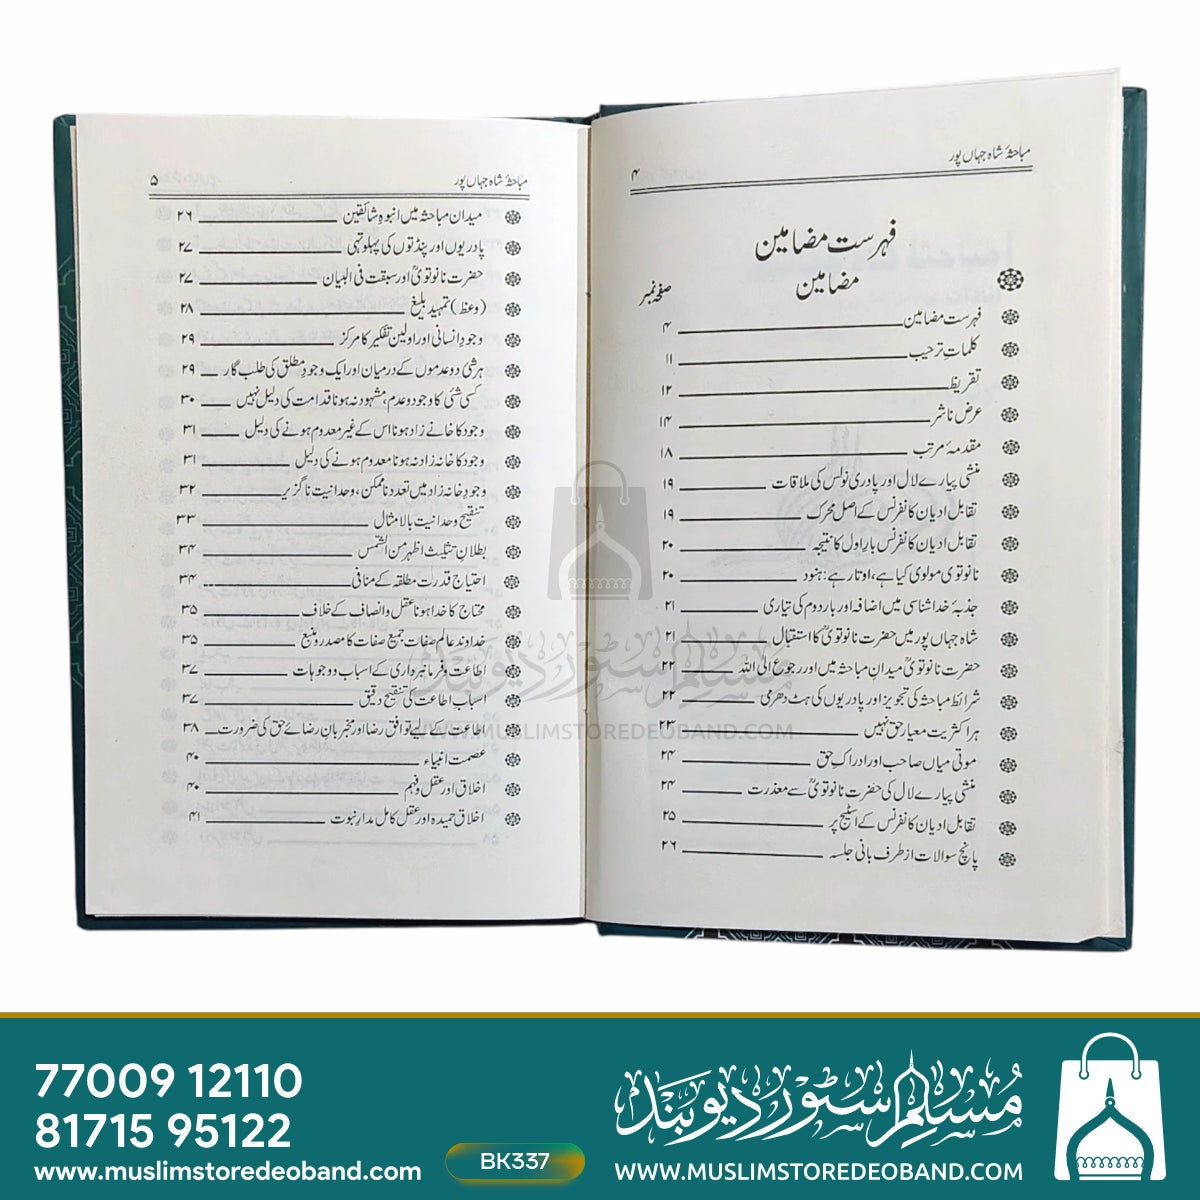 مباحثۂ شاہ جہاں پور ۴
فہرست مضامین
مضامین صفحہ نمبر
فہرست مضامین ۴
کلمات ترحیب ۱۱
تقریظ ۱۲
عرض ناشر ۱۴
مقدمۂ مرتب ۱۸
منشی پیارے لال اور پادری نولس کی ملاقات ۱۹
تقابل ادیان کانفرنس کے اصل محرک ۱۹
تقابل ادیان کانفرنس بار اول کا نتیجہ ۲۰
نانوتوی مولوی کیا ہے، اوتار ہے: ہنود ۲۰
جذبۂ خدا شناسی میں اضافہ اور بار دوم کی تیاری ۲۱
شاہ جہاں پور میں حضرت نانوتویؒ کا استقبال ۲۱
حضرت نانوتویؒ میدانِ مباحثہ میں اور رجوع الی اللہ ۲۲
شرائط مباحثہ کی تجویز اور پادریوں کی ہٹ دھرمی ۲۲
ہر اکثریت معیار حق نہیں ۲۳
موتی میاں صاحب اور ادراکِ حق ۲۴
منشی پیارے لال کی حضرت نانوتویؒ سے معذرت ۲۴
تقابل ادیان کانفرنس کے اسٹیج پر ۲۵
پانچ سوالات از طرف بانی جلسہ ۲۶
مباحثۂ شاہ جہاں پور ۵
میدان مباحثہ میں انبوہِ شائقین ۲۶
پادریوں اور پنڈتوں کی پہلو تہی ۲۷
حضرت نانوتویؒ اور سبقت فی البیان ۲۷
(وعظ) تمہید بلیغ ۲۸
وجودِ انسانی اور اولین تفکیر کا مرکز ۲۹
ہر شئی دو عدموں کے درمیان اور ایک وجودِ مطلق کی طلب گار ۲۹
کسی شئی کا وجود و عدم، مشہود نہ ہونا قدامت کی دلیل نہیں ۳۰
وجود کا خانے زاد ہونا اس کے غیر معدوم ہونے کی دلیل ۳۱
وجود کا خانہ زاد نہ ہونا معدوم ہونے کی دلیل ۳۱
وجودِ خانہ زاد میں تعدد ناممکن، وحدانیت ناگزیر ۳۲
تنقیح وحدانیت بالامثال ۳۳
بطلانِ تثلیث اظہر من الشمس ۳۴
احتیاج قدرت مطلقہ کے منافی ۳۴
محتاج کا خدا ہونا عقل و انصاف کے خلاف ۳۵
خداوند عالم صفات جمیع صفات کا مصدر و منبع ۳۵
اطاعت و فرمانبرداری کے اسباب و وجوہات ۳۷
اسباب اطاعت کی تنقیح دقیق ۳۷
اطاعت کے لیے توافق رضا اور مخبر بان رضائے حق کی ضرورت ۳۸
عصمت انبیاء ۴۰
اخلاق اور عقل و فہم ۴۰
اخلاق حمیدہ اور عقل کامل مدار نبوت ۴۱
مسلم سٹور دیوبند
WWW.MUSLIMSTOREDEOBAND.COM
77009 12110
81715 95122
www.muslimstoredeoband.com
BK337
مسلم سٹور دیوبند
WWW.MUSLIMSTOREDEOBAND.COM